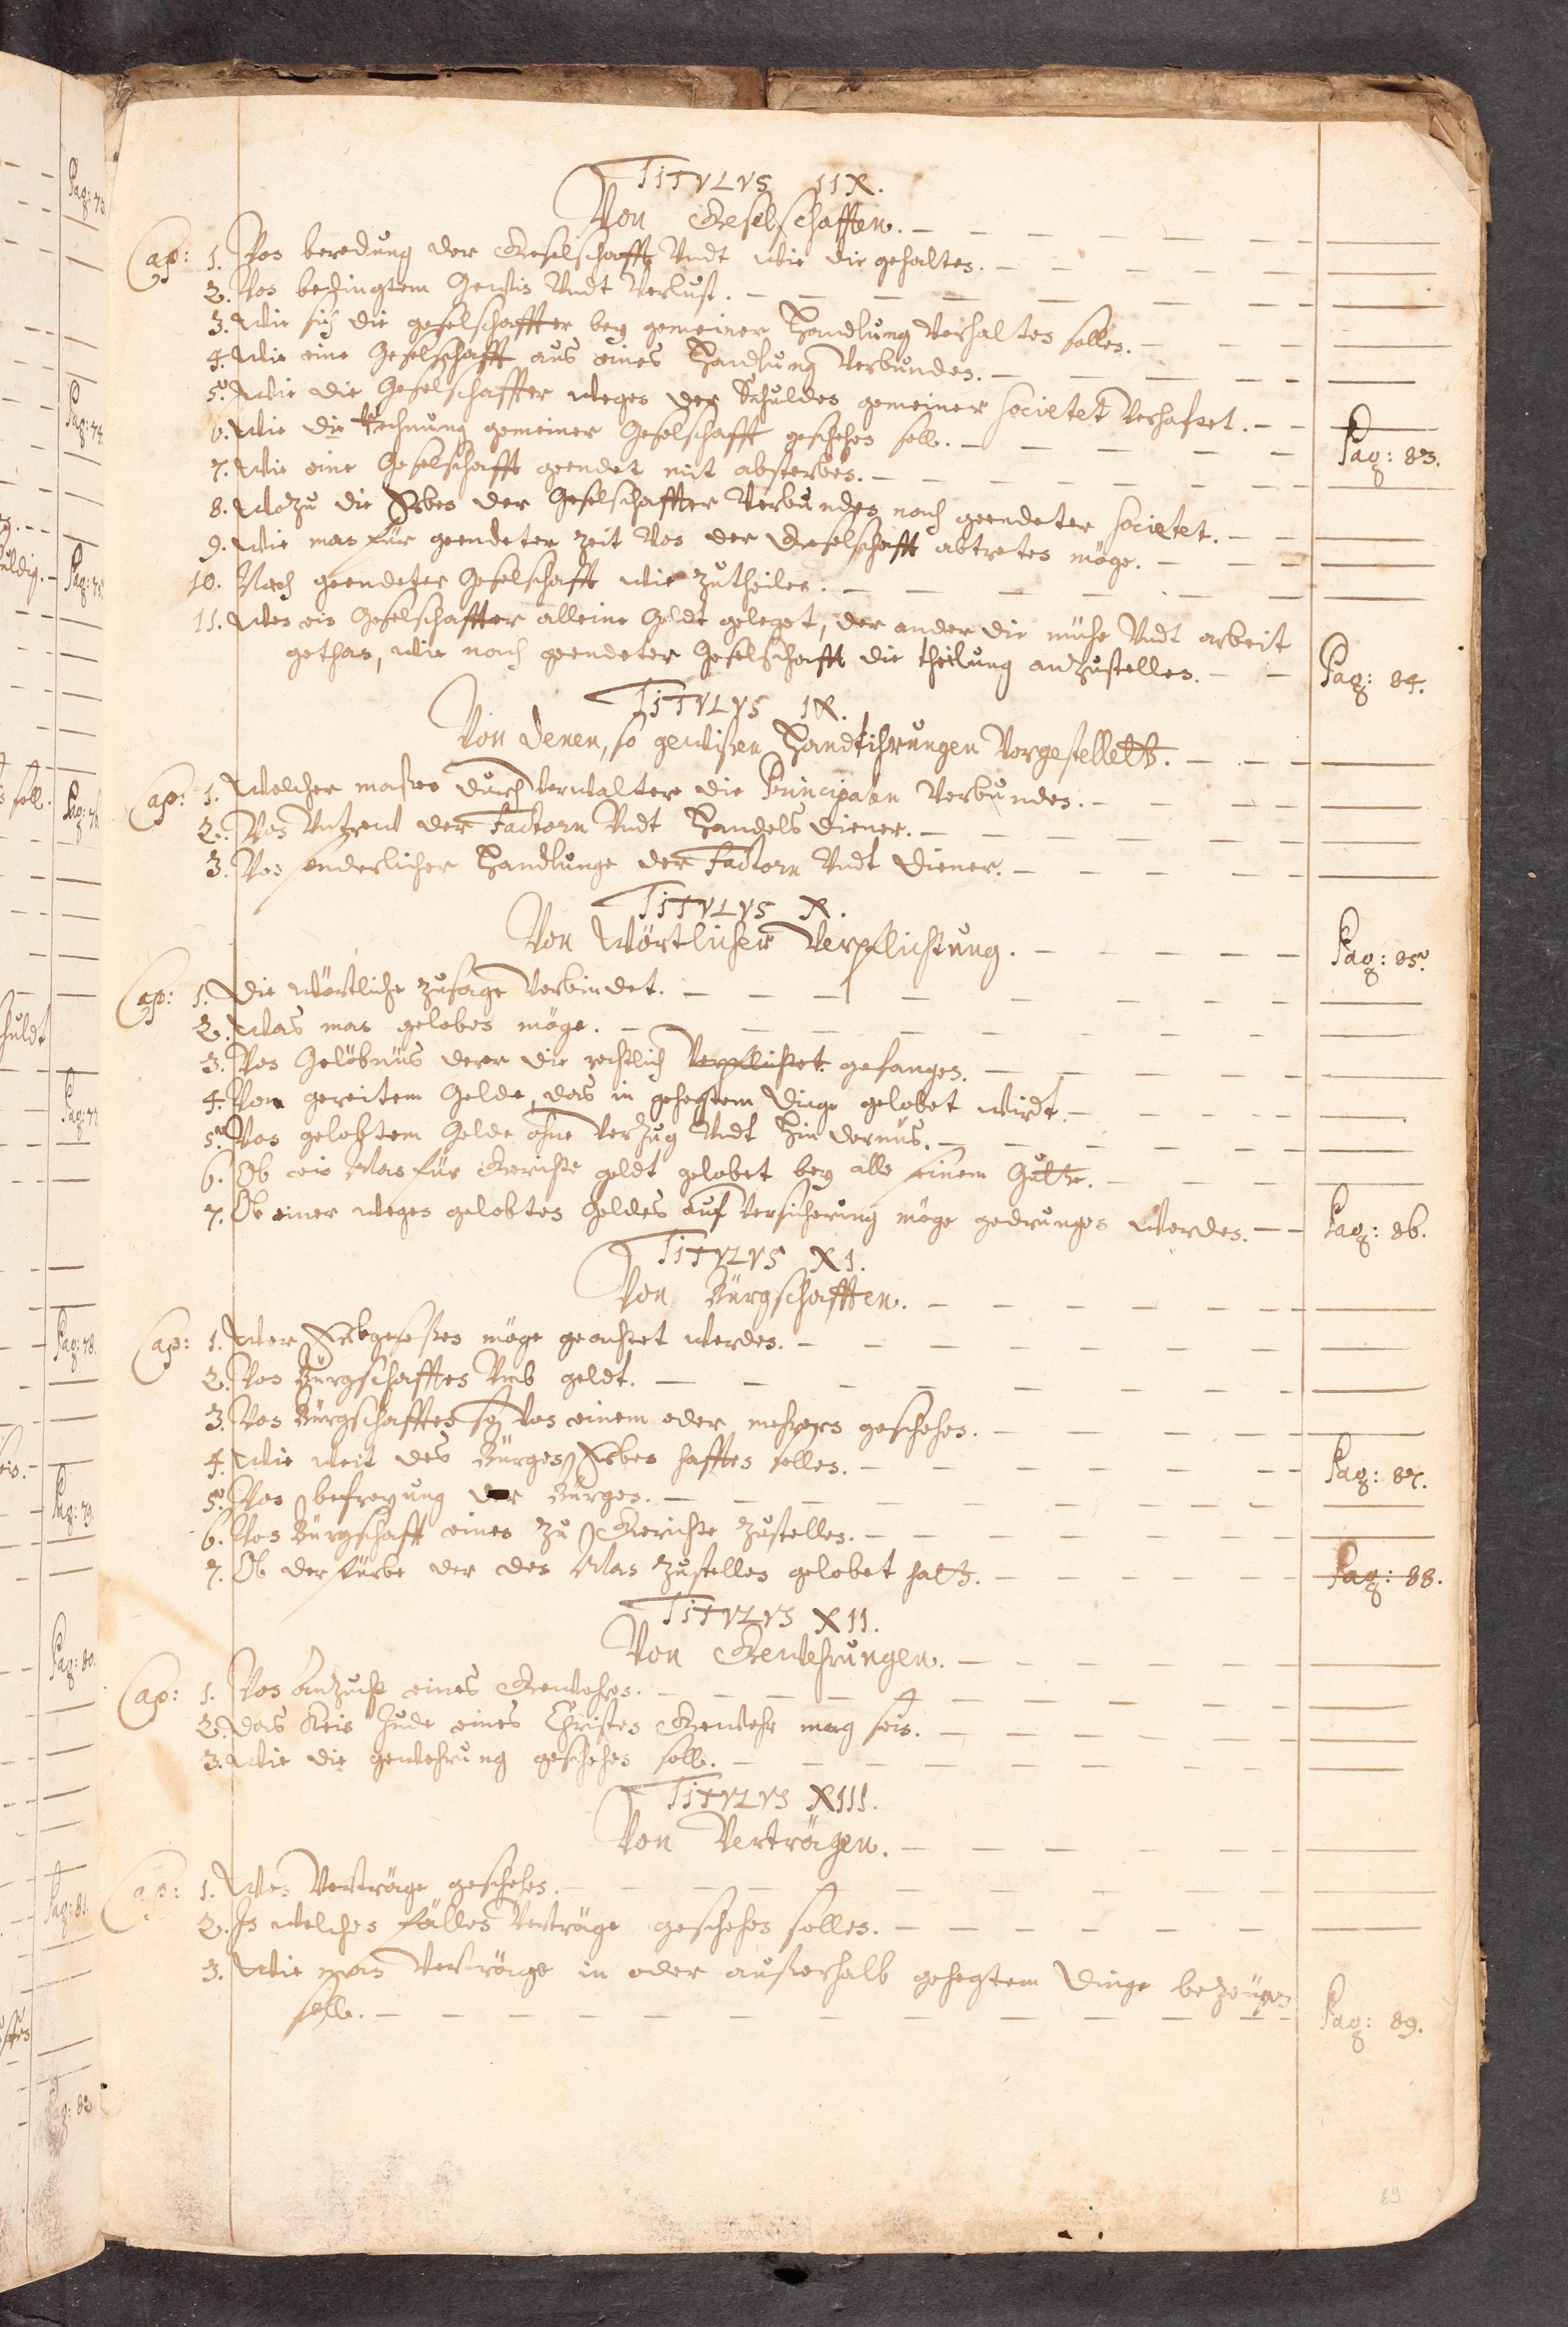 TITVLVS IIX.
Von Geselschafften.
Cap: 1. Von beredung der Geselschafft Vndt wie die gehalten.
2. Von bedingtem Gewin Vndt Verlust.
3. Wie sich die geselschaffter bey gemeiner Handlung Verhalten sollen.
4. Wie eine Geselschafft aus eines Handlung Verbunden.
5. Wie die Geselschaffter wegen der Schulden gemeiner Societet Verhafftet.
6. Wie die Rechnung gemeiner Geselschafft geschehen solle. Pag: 83.
7. Wie eine Geselschafft geendet mit absterben.
8. Wozu die Erben der Geselschaffter Verbunden nach geendeter Societet.
9. Wie man für geendeter Zeit Von der Geselschafft abtreten möge.
10. Nach geendeter Geselschafft wie Zutheilen.
11. Wen ein Geselschaffter alleine Geldt geleget, der ander die mühe Vndt arbeit
gethan, wie nach geendeter Geselschafft die theilung anzustellen. Pag: 84.
TITVLVS IX.
Von denen, so gewißen Handthirungen Vorgestellett.
Cap: 1. Welcher maßen durch Verwalter die Principalen Verbunden.
2. Von Vntrew der Factorn Vndt Handels diener.
3. Von sonderlicher Handlunge der Factorn Vndt diener.
TITVLVS X.
Von Wörtlicher Verpflichtung. Pag: 85.
Cap: 1. Die Wörtliche Zusage Verbindet.
2. Was man geloben möge.
3. Von Gelöbnüs derer die rechtlich Verpflichtet gefangen.
4. Von gereitem Gelde, das in gehegtem Dinge gelobet wirdt.
5. Von gelobtem Gelde ohne Verzug Vndt Hindernüs.
6. Ob ein Man für Gerichte geldt gelobet bey alle seinem Gutte.
7. Ob einer wegen gelobten Geldes auf Versicherung möge gedrungen werden. Pag: 86.
TITVLVS XI.
Von Bürgschafften.
Cap: 1. Wer Erbgeseßen möge geachtet werden.
2. Von Bürgschafften Vmb geldt.
3. Von Bürgschafften so Von einem oder mehrern geschehen.
4. Wie weit des Bürgen Erben hafften sollen. Pag: 87.
5. Von befreyung der Bürgen.
6. Von Bürgschafft einen zu Gerichte Zustellen.
7. Ob der stürbe der den Man Zustellen gelobet hatt. Pag: 88.
TITVLVS XII.
Von Gewehrungen.
Cap: 1. Von Anzucht eines Gewehren.
2. Das Kein Jude eines Christen Gewehr mag sein.
3. Wie die gewehrung geschehen solle.
TITVLVS XIII.
Von Verträgen.
Cap: 1. Wen Verträge geschehen.
2. In welchen fällen Verträge geschehen sollen.
3. Wie man Verträge in oder außerhalb gehegtem Dinge bezeugen
solle. Pag: 89.
89